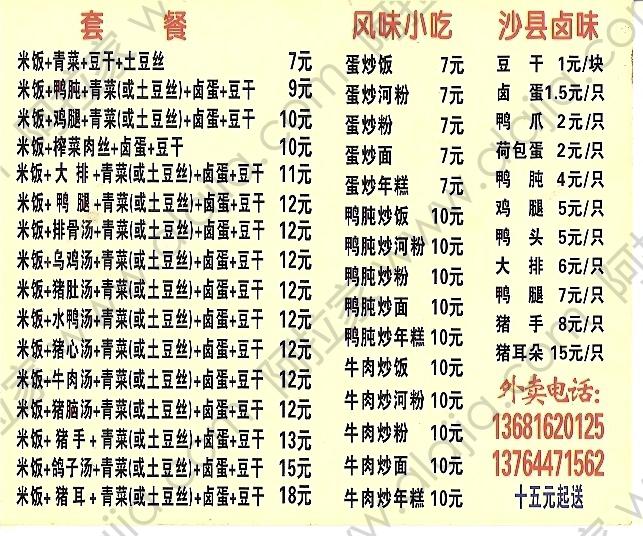 套 餐
米饭+青菜+豆干+土豆丝 7元
米饭+鸭肫+青菜(或土豆丝)+卤蛋+豆干 9元
米饭+鸡腿+青菜(或土豆丝)+卤蛋+豆干 10元
米饭+榨菜肉丝+卤蛋+豆干 10元
米饭+大 排+青菜(或土豆丝)+卤蛋+豆干 11元
米饭+ 鸭 腿+青菜(或土豆丝)+卤蛋+豆干 12元
米饭+排骨汤+青菜(或土豆丝)+卤蛋+豆干 12元
米饭+乌鸡汤+青菜(或土豆丝)+卤蛋+豆干 12元
米饭+猪肚汤+青菜(或土豆丝)+卤蛋+豆干 12元
米饭+水鸭汤+青菜(或土豆丝)+卤蛋+豆干 12元
米饭+猪心汤+青菜(或土豆丝)+卤蛋+豆干 12元
米饭+牛肉汤+青菜(或土豆丝)+卤蛋+豆干 12元
米饭+猪脑汤+青菜(或土豆丝)+卤蛋+豆干 12元
米饭+ 猪 手 +青菜(或土豆丝)+卤蛋+豆干 13元
米饭+鸽子汤+青菜(或土豆丝)+卤蛋+豆干 15元
米饭+ 猪 耳 +青菜(或土豆丝)+卤蛋+豆干 18元
风味小吃
蛋炒饭 7元
蛋炒河粉 7元
蛋炒粉 7元
蛋炒面 7元
蛋炒年糕 7元
鸭肫炒饭 10元
鸭肫炒河粉 10元
鸭肫炒粉 10元
鸭肫炒面 10元
鸭肫炒年糕 10元
牛肉炒饭 10元
牛肉炒河粉 10元
牛肉炒粉 10元
牛肉炒面 10元
牛肉炒年糕 10元
沙县卤味
豆 干 1元/块
卤 蛋 1.5元/只
鸭 爪 2元/只
荷包蛋 2元/只
鸭 肫 4元/只
鸡 腿 5元/只
鸭 头 5元/只
大 排 6元/只
鸭 腿 7元/只
猪 手 8元/只
猪耳朵 15元/只
外卖电话:
13681620125
13764471562
十五元起送